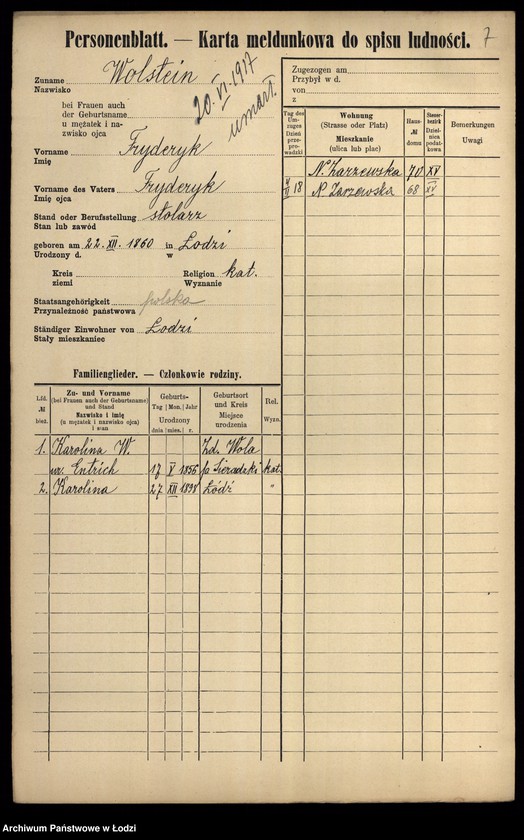 Personenblatt. — Karta meldunkowa do spisu ludności. 7
Zuname Wolstein
Nazwisko
20.VI.1917
umarł.
bei Frauen auch
der Geburtsname
u mężatek i na-
zwisko ojca
Vorname Fryderyk
Imię
Vorname des Vaters Fryderyk
Imię ojca
Stand oder Berufsstellung stolarz
Stan lub zawód
geboren am 22.XII.1860 in Łodzi
Urodzony d. w
Kreis Religion kat.
ziemi Wyznanie
Staatsangehörigkeit polska
Przynależność państwowa
Ständiger Einwohner von Łodzi
Stały mieszkaniec
Familienglieder. — Członkowie rodziny.
Lfd. № bież.
Zu- und Vorname
(bei Frauen auch der Geburtsname)
und Stand
Nazwisko i imię
(u mężatek i nazwisko ojca)
i stan
Geburts-
Tag Mon. Jahr
Urodzony
dnia mies. r.
Geburtsort
und Kreis
Miejsce
urodzenia
Rel.
Wyzn.
1. Karolina W. Zd. Wola
ur. Entrich 17 V 1856 p Sieradzki kat.
2. Karolina 27 XII 1898 Łódź "
Zugezogen am
Przybył w d.
von
z
Tag des
Um-
zuges
Dzień
prze-
pro-
wadzki
Wohnung
(Strasse oder Platz)
Mieszkanie
(ulica lub plac)
Haus-
№
domu
Steuer-
bezirk
Dziel-
nica
podat-
kowa
Bemerkungen
Uwagi
N. Zarzewska 70 XV
4/II 18 N. Zarzewska 68 XV
Archiwum Państwowe w Łodzi